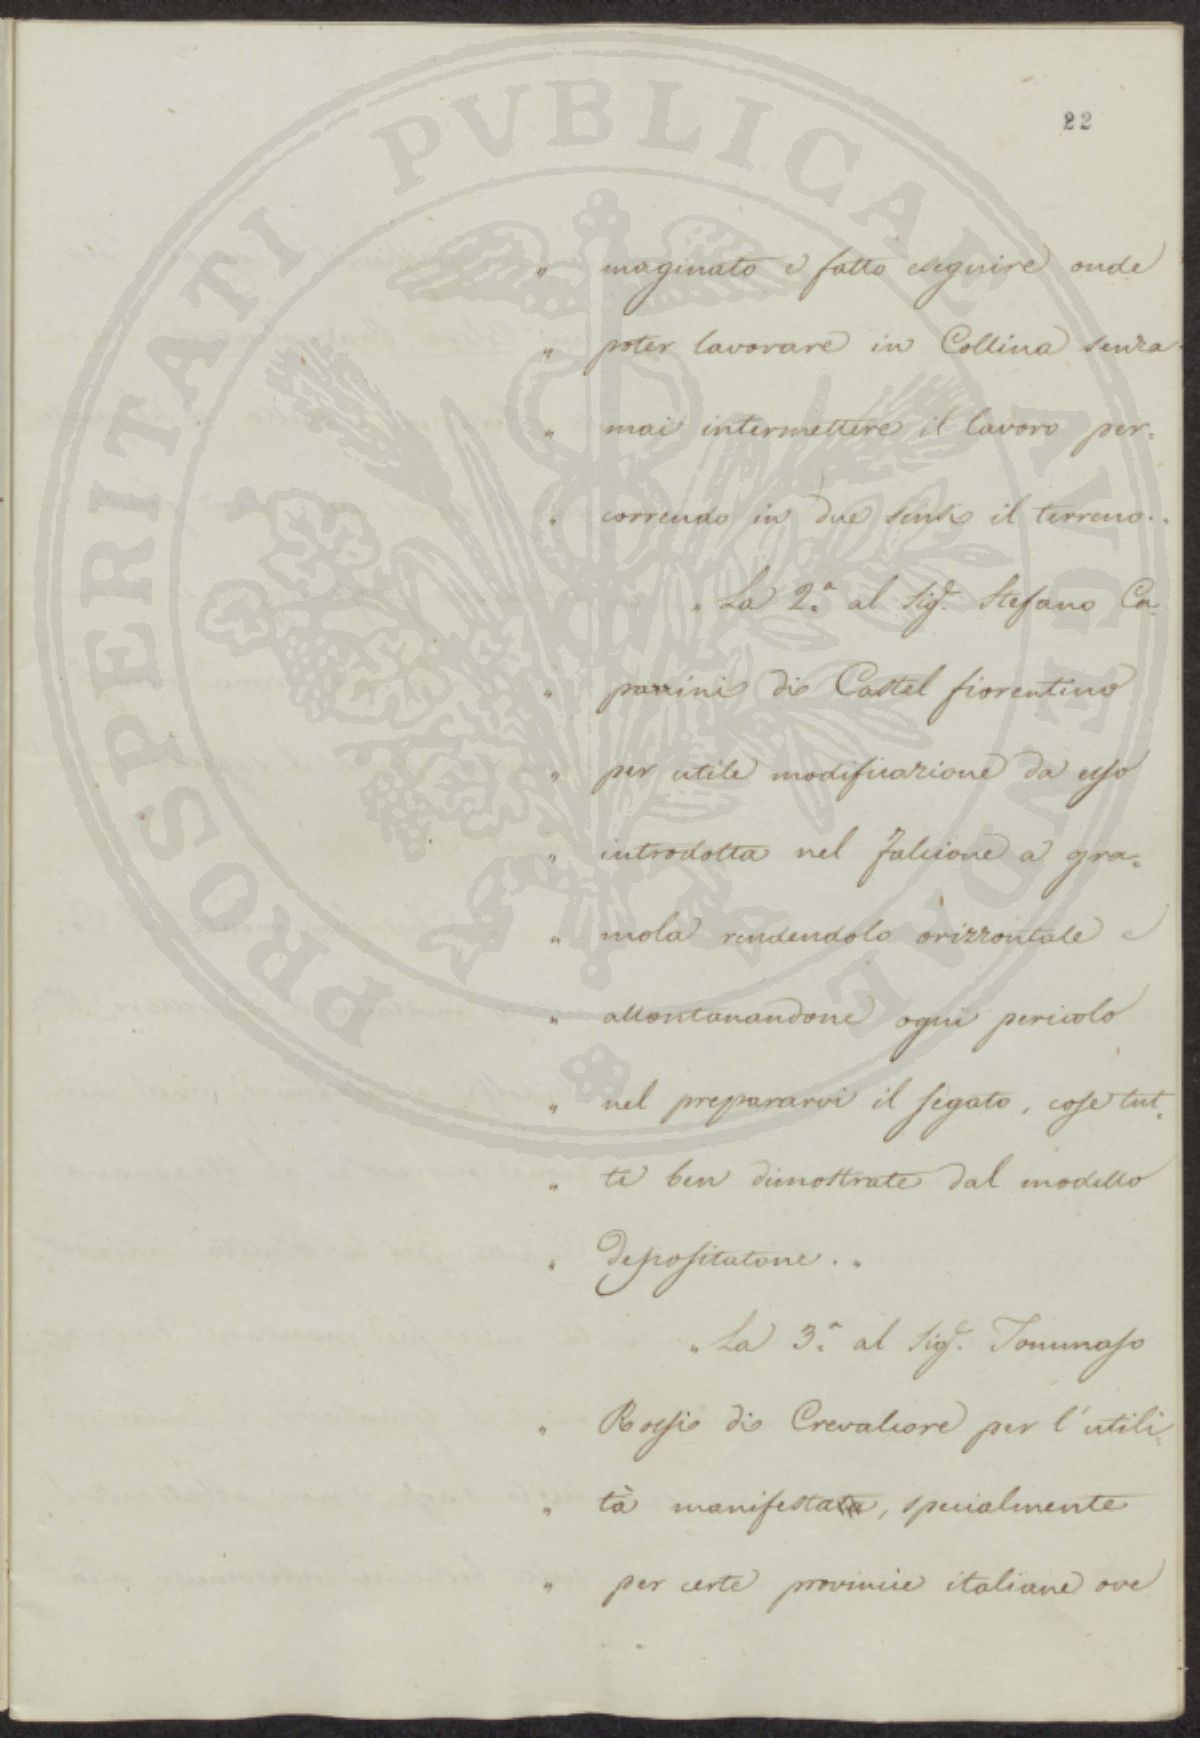 PROSPERITATI PUBLICAE AVGENDAE
22
" maginato e fatto eseguire onde
" poter lavorare in Collina senza
" mai intermettere il lavoro per=
" correndo in due sensi il terreno. "
" La 2.ª al Sig.r Stefano Ca=
" parrini di Castel fiorentino
" per utile modificazione da esso
" introdotta nel Falcione a gra=
" mola rendendolo orizzontale e
" allontanandone ogni pericolo
" nel prepararvi il segato, cose tut=
" te ben dimostrate dal modello
" depositatone. "
" La 3.ª al Sig.r Tommaso
" Rossi di Crevalcore per l'utili=
" tà manifestata, specialmente
" per certe provincie italiane ove